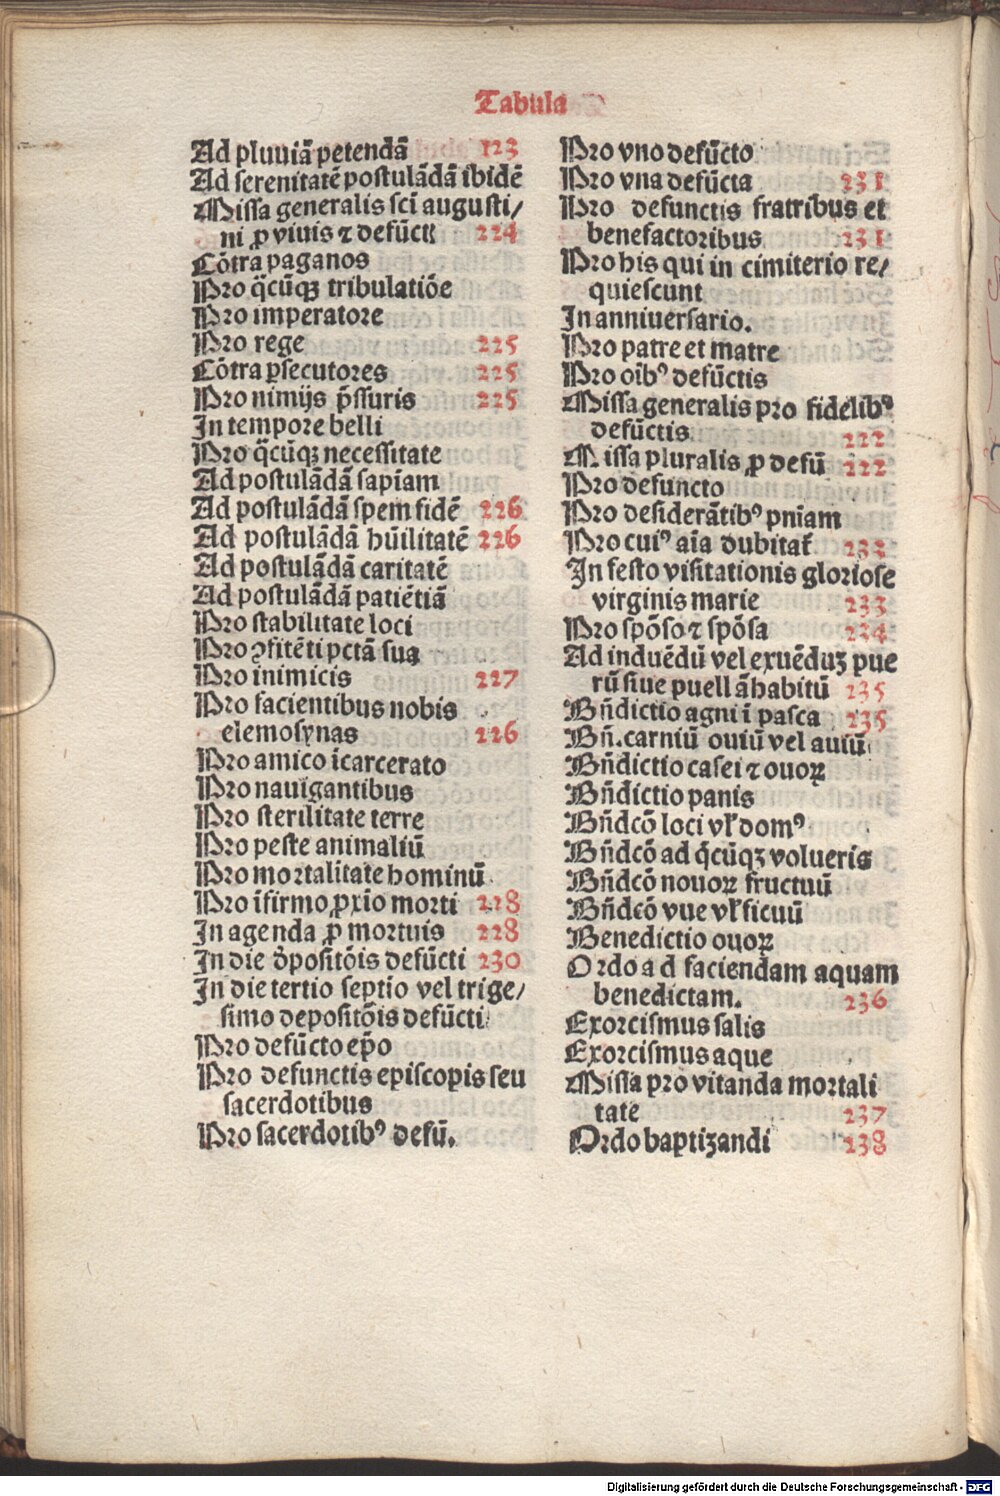 Tabula
Ad pluuiā petendā 123
Ad serenitatē postulādā ibidē
Missa generalis scī augusti/
ni ꝓ viuis ⁊ defūctꝭ 224
Cōtra paganos
Pro q̄cūqꝫ tribulatiōe
Pro imperatore
Pro rege 225
Cōtra ꝑsecutores 225
Pro nimijs p̄ssuris 225
In tempore belli
Pro q̄cūqꝫ necessitate
Ad postulādā sapiam
Ad postulādā spem fidē 226
Ad postulādā hūilitatē 226
Ad postulādā caritatē
Ad postulādā patiētiā
Pro stabilitate loci
Pro ꝯfitēti pctā sua
Pro inimicis 227
Pro facientibus nobis
elemosynas 226
Pro amico īcarcerato
Pro nauigantibus
Pro sterilitate terre
Pro peste animaliū
Pro mortalitate hominū
Pro īfirmo ꝓxīo morti 228
In agenda ꝓ mortuis 228
In die dꝫpositōis defūcti 230
In die tertio septīo vel trige/
simo depositōis defūcti
Pro defūcto ep̄o
Pro defunctis episcopis seu
sacerdotibus
Pro sacerdotibꝰ defū.
Pro vno defūcto
Pro vna defūcta 231
Pro defunctis fratribus et
benefactoribus 231
Pro his qui in cimiterio re/
quiescunt
In anniuersario.
Pro patre et matre
Pro oībꝰ defūctis
Missa generalis pro fidelibꝰ
defūctis 222
Missa pluralis ꝓ defū 222
Pro defuncto
Pro desiderātibꝰ pn̄iam
Pro cuiꝰ aīa dubitat᷑ 232
In festo visitationis gloriose
virginis marie 233
Pro spōso ⁊ spōsa 224
Ad induēdū vel exuēduꝫ pue
rū siue puellā habitū 235
Bn̄dictio agni ī pasca 235
Bn̄. carniū ouiū vel auiū
Bn̄dictio casei ⁊ ouoꝝ
Bn̄dictio panis
Bn̄dcō loci vl̓ domꝰ
Bn̄dcō ad q̄cūqꝫ volueris
Bn̄dcō nouoꝝ fructuū
Bn̄dcō vue vl̓ ficuū
Benedictio ouoꝝ
Ordo ad faciendam aquam
benedictam. 236
Exorcismus salis
Exorcismus aque
Missa pro vitanda mortali
tate 237
Ordo baptizandi 238
Digitalisierung gefördert durch die Deutsche Forschungsgemeinschaft - DFG